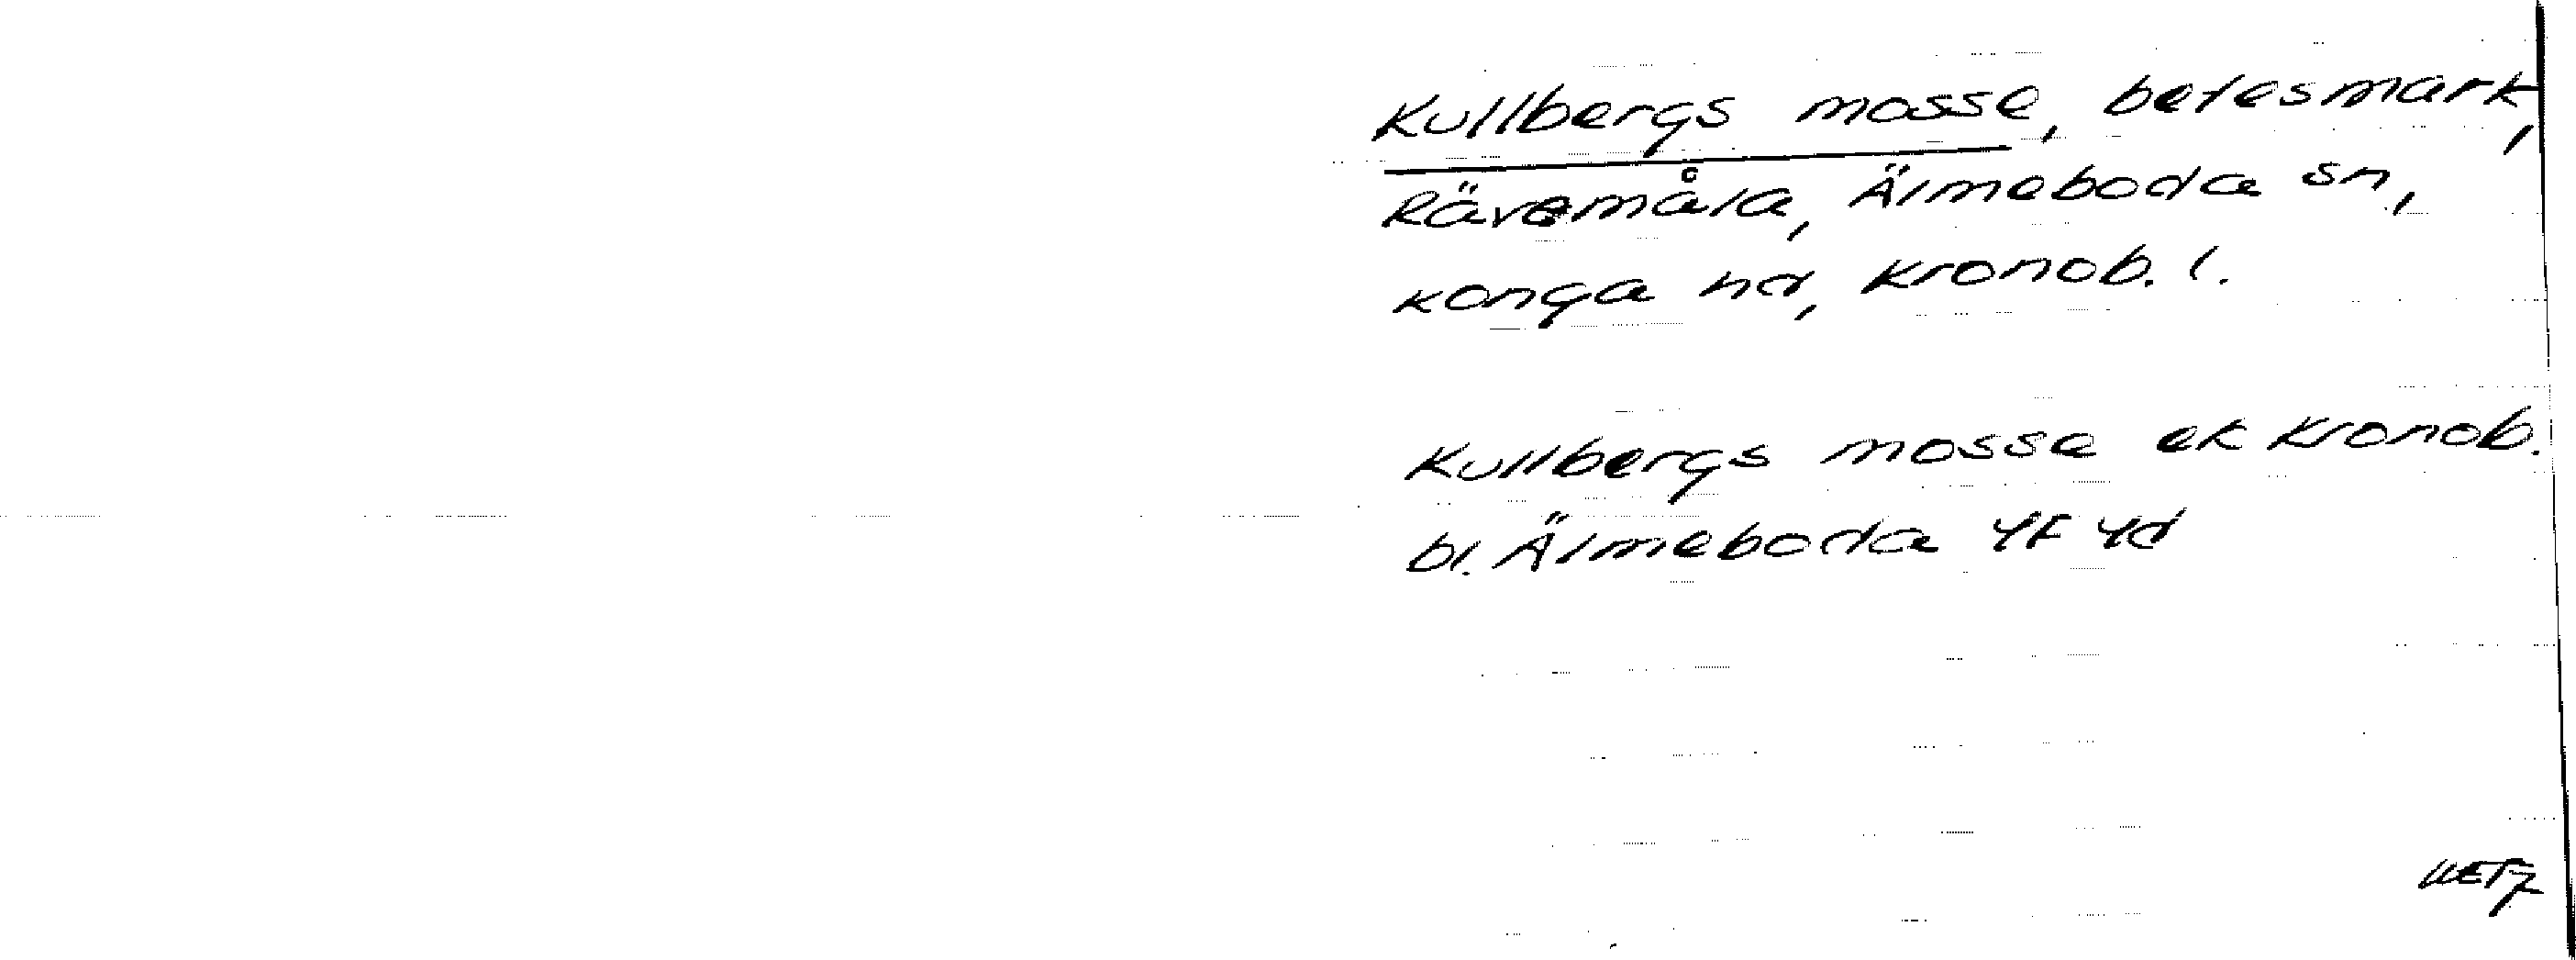 Kullbergs mosse, betesmark,
Rävemåla, Älmeboda sn,
Konga hd, Kronob. l.
Kullbergs mosse ek Kronob.
bl. Älmeboda 4F 4d